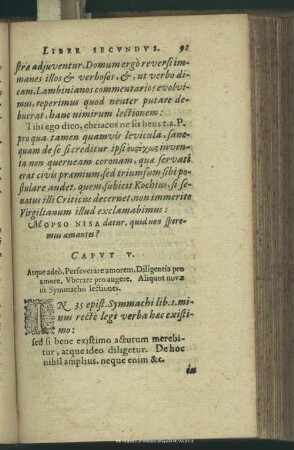 LIBER SECVNDVS. 91
stra adjuventur. Domum ergò reversi im-
manes illos & verbosos, &, ut verbo di-
cam, Lambinianos commentarios evolvi-
mus, reperimus quod neuter putare de-
buerat, hanc nimirum lectionem:
Tibi ego dico, ebriacus ne sis heus t.a.P.
pro qua tamen quamvis levicula, sane-
quam de se si creditur ipsi inven-
ta non querneam coronam, qua servati
erat civis præmium, sed triumfum sibi po-
stulare audet. quem, subicit Kochius, si se-
natus illi Criticus decernet, non immerito
Virgilianum illud exclamabimus:
MOPSO NISA datur. quid non spere-
mus amantes?
CAPVT V.
Atque adeò, Perseverare amorem. Diligentia pro
amore. Vberare pro augere. Aliquot novæ
in Symmacho lectiones.
IN 35 epist. Symmachi lib. 1. mi-
nus rectè legi verba hæc existi-
mo:
sed si bene existimo actutum merebi-
tur, atque ideo diligetur. De hoc
nihil amplius. neque enim &c.